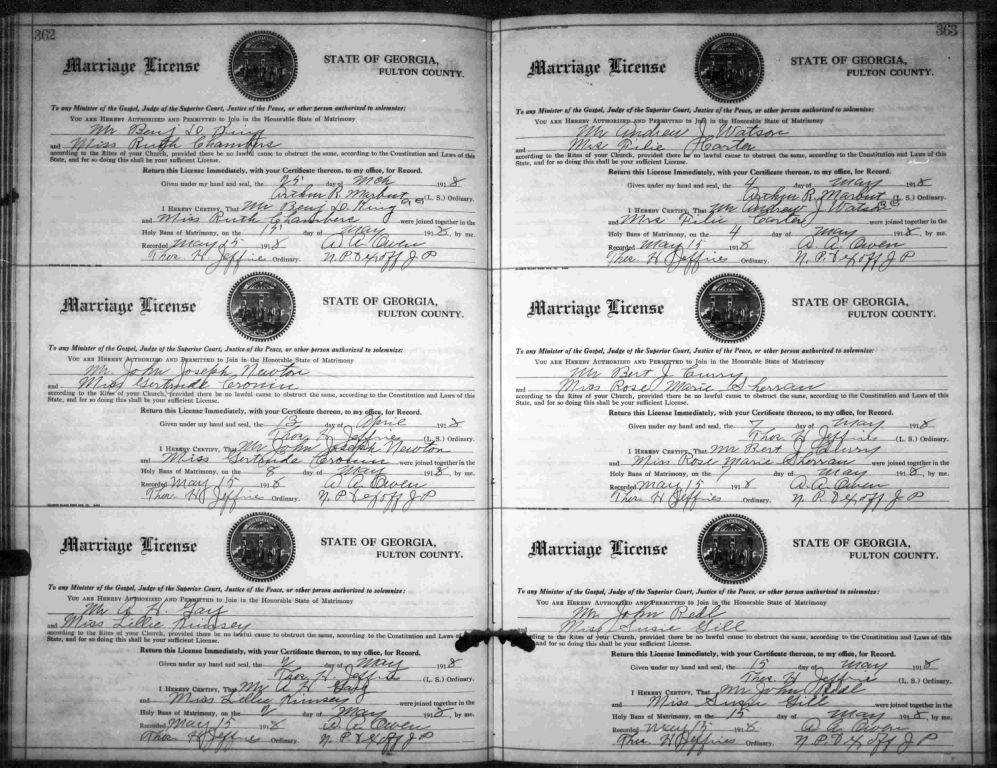 362
Marriage License
STATE OF GEORGIA,
FULTON COUNTY.
To any Minister of the Gospel, Judge of the Superior Court, Justice of the Peace, or other person authorized to solemnize:
YOU ARE HEREBY AUTHORIZED AND PERMITTED to Join in the Honorable State of Matrimony
Mr Benj D King
and Miss Ruth Chambers
according to the Rites of your Church, provided there be no lawful cause to obstruct the same, according to the Constitution and Laws of this
State, and for so doing this shall be your sufficient License.
Return this License Immediately, with your Certificate thereon, to my office, for Record.
Given under my hand and seal, the 25 day of Mch 1918
Arthur R. Marbut (L. S.) Ordinary.
I HEREBY CERTIFY, That Mr Benj D King
and Miss Ruth Chambers were joined together in the
Holy Bans of Matrimony, on the 15 day of May 1918, by me.
Recorded May 15 1918 A. A. Owen
Thos. H Jeffries Ordinary. N. P. & Ex off J P
Marriage License
STATE OF GEORGIA,
FULTON COUNTY.
To any Minister of the Gospel, Judge of the Superior Court, Justice of the Peace, or other person authorized to solemnize:
YOU ARE HEREBY AUTHORIZED AND PERMITTED to Join in the Honorable State of Matrimony
Mr. John Joseph Newton
and Miss Gertrude Cronin
according to the Rites of your Church, provided there be no lawful cause to obstruct the same, according to the Constitution and Laws of this
State, and for so doing this shall be your sufficient License.
Return this License Immediately, with your Certificate thereon, to my office, for Record.
Given under my hand and seal, the 13 day of April 1918
Thos H Jeffries (L. S.) Ordinary.
I HEREBY CERTIFY, That Mr John Joseph Newton
and Miss Gertrude Cronin were joined together in the
Holy Bans of Matrimony, on the 8 day of May 1918, by me.
Recorded May 15 1918 A. A. Owen
Thos H Jeffries Ordinary. N. P. & Ex off J P
Marriage License
STATE OF GEORGIA,
FULTON COUNTY.
To any Minister of the Gospel, Judge of the Superior Court, Justice of the Peace, or other person authorized to solemnize:
YOU ARE HEREBY AUTHORIZED AND PERMITTED to Join in the Honorable State of Matrimony
Mr A H Gay
and Miss Lillie Kimsey
according to the Rites of your Church, provided there be no lawful cause to obstruct the same, according to the Constitution and Laws of this
State, and for so doing this shall be your sufficient License.
Return this License Immediately, with your Certificate thereon, to my office, for Record.
Given under my hand and seal, the 2 day of May 1918
Thos. H Jeffries (L. S.) Ordinary.
I HEREBY CERTIFY, That Mr A H Gay
and Miss Lillie Kimsey were joined together in the
Holy Bans of Matrimony, on the 2 day of May 1918, by me.
Recorded May 15 1918 A. A. Owen
Thos H Jeffries Ordinary. N. P. & Ex off J P
363
Marriage License
STATE OF GEORGIA,
FULTON COUNTY.
To any Minister of the Gospel, Judge of the Superior Court, Justice of the Peace, or other person authorized to solemnize:
YOU ARE HEREBY AUTHORIZED AND PERMITTED to Join in the Honorable State of Matrimony
Mr Andrew J Watson
and Mrs Rilie Carter
according to the Rites of your Church, provided there be no lawful cause to obstruct the same, according to the Constitution and Laws of this
State, and for so doing this shall be your sufficient License.
Return this License Immediately, with your Certificate thereon, to my office, for Record.
Given under my hand and seal, the 4 day of May 1918
Arthur R. Marbut (L. S.) Ordinary.
I HEREBY CERTIFY, That Mr Andrew J Watson
and Mrs Rilie Carter were joined together in the
Holy Bans of Matrimony, on the 4 day of May 1918, by me.
Recorded May 15 1918 A. A. Owen
Thos. H Jeffries Ordinary. N. P. & Ex off J P
Marriage License
STATE OF GEORGIA,
FULTON COUNTY.
To any Minister of the Gospel, Judge of the Superior Court, Justice of the Peace, or other person authorized to solemnize:
YOU ARE HEREBY AUTHORIZED AND PERMITTED to Join in the Honorable State of Matrimony
Mr Bert J Curry
and Miss Rose Marie Shorran
according to the Rites of your Church, provided there be no lawful cause to obstruct the same, according to the Constitution and Laws of this
State, and for so doing this shall be your sufficient License.
Return this License Immediately, with your Certificate thereon, to my office, for Record.
Given under my hand and seal, the 7 day of May 1918
Thos. H Jeffries (L. S.) Ordinary.
I HEREBY CERTIFY, That Mr Bert J Curry
and Miss Rose Marie Shorran were joined together in the
Holy Bans of Matrimony, on the 7 day of May 1918, by me.
Recorded May 15 1918 A. A. Owen
Thos H Jeffries Ordinary. N. P. & Ex off J P
Marriage License
STATE OF GEORGIA,
FULTON COUNTY.
To any Minister of the Gospel, Judge of the Superior Court, Justice of the Peace, or other person authorized to solemnize:
YOU ARE HEREBY AUTHORIZED AND PERMITTED to Join in the Honorable State of Matrimony
Mr John Redl
Miss Susie Gill
according to the Rites of your Church, provided there be no lawful cause to obstruct the same, according to the Constitution and Laws of this
and for so doing this shall be your sufficient License.
Return this License Immediately, with your Certificate thereon, to my office, for Record.
Given under my hand and seal, the 15 day of May 1918
Thos. H Jeffries (L. S.) Ordinary.
I HEREBY CERTIFY, That Mr John Redl
and Miss Susie Gill were joined together in the
Holy Bans of Matrimony, on the 15 day of May 1918, by me.
Recorded May 15 1918 A. A. Owen
Thos. H Jeffries Ordinary. N. P. & Ex off J P